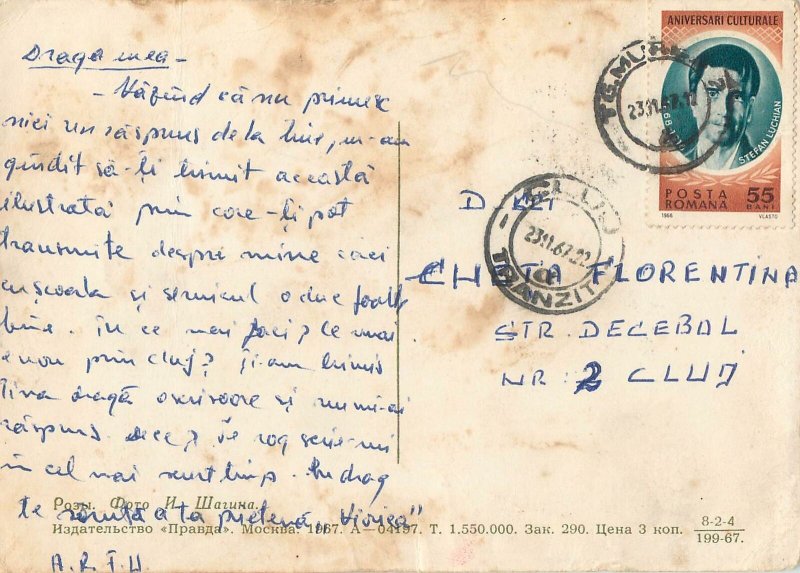 Draga mea -
- Văzînd că nu primesc
nici un răspuns de la tine, m-am
gîndit să-ți trimit această
ilustrată prin care-ți pot
transmite despre mine căci
cu școala și serviciul o duc foarte
bine. Tu ce mai faci? Ce mai
e nou prin Cluj? Ți-am trimis
Tina dragă o scrisoare și nu mi-ai
răspuns. Dece? Te rog scrie-mi
în cel mai scurt timp. Cu drag
te sărută a ta prietenă,
A.R.T.H
Розы. Фото И. Шагина.
Издательство «Правда». Москва. 1967. А—04197. Т. 1.550.000. Зак. 290. Цена 3 коп.
8-2-4
199-67.
ANIVERSARI CULTURALE
ȘTEFAN LUCHIAN
POSTA
ROMANA
55
BANI
1966
VLASTO
TG.MUREȘ
23.11.67.12
CLUJ
23.11.67.22
TRANZIT
D. rei
CHEȚA FLORENTINA
STR DECEBAL
NR 2 CLUJ